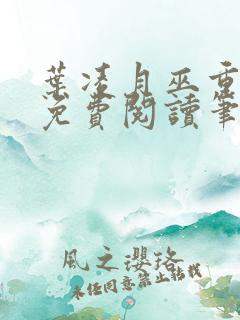 葉凌月巫重
免費閱讀筆
風之瓔珞
未經同意禁止轉載